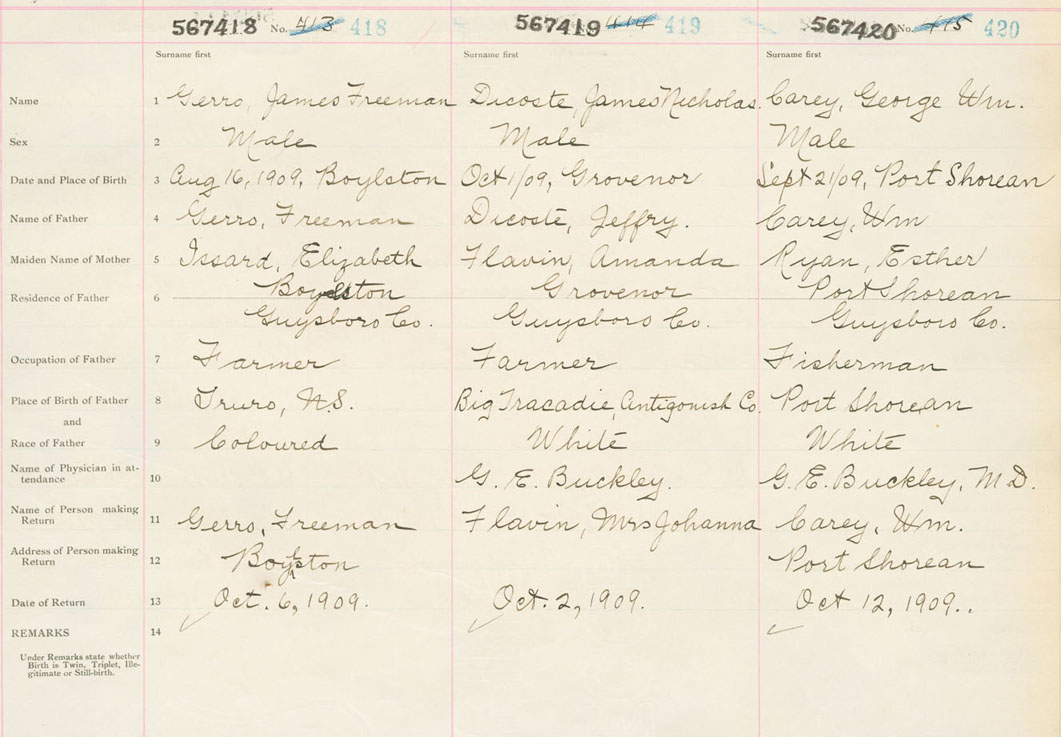 567418 No. 413 418 567419 414 419 567420 No. 415 420
Surname first Surname first Surname first
Name 1 Gerro, James Freeman Dicoste, James Nicholas. Carey, George Wm.
Sex 2 Male Male Male
Date and Place of Birth 3 Aug 16, 1909, Boylston Oct 1/09, Grovenor Sept 21/09, Port Shorean
Name of Father 4 Gerro, Freeman Dicoste, Jeffry. Carey, Wm
Maiden Name of Mother 5 Issard, Elizabeth Flavin, Amanda Ryan, Esther
Residence of Father 6 Boylston Grovenor Port Shorean
Guysboro Co. Guysboro Co. Guysboro Co.
Occupation of Father 7 Farmer Farmer Fisherman
Place of Birth of Father 8 Truro, N.S. Big Tracadie, Antigonish Co. Port Shorean
and
Race of Father 9 Coloured White White
Name of Physician in at-
tendance 10 G. E. Buckley. G. E. Buckley, M.D.
Name of Person making
Return 11 Gerro, Freeman Flavin, Mrs Johanna Carey, Wm.
Address of Person making
Return 12 Boylston Port Shorean
Date of Return 13 Oct. 6, 1909. Oct. 2, 1909. Oct 12, 1909..
REMARKS 14
Under Remarks state whether
Birth is Twin, Triplet, Ille-
gitimate or Still-birth.